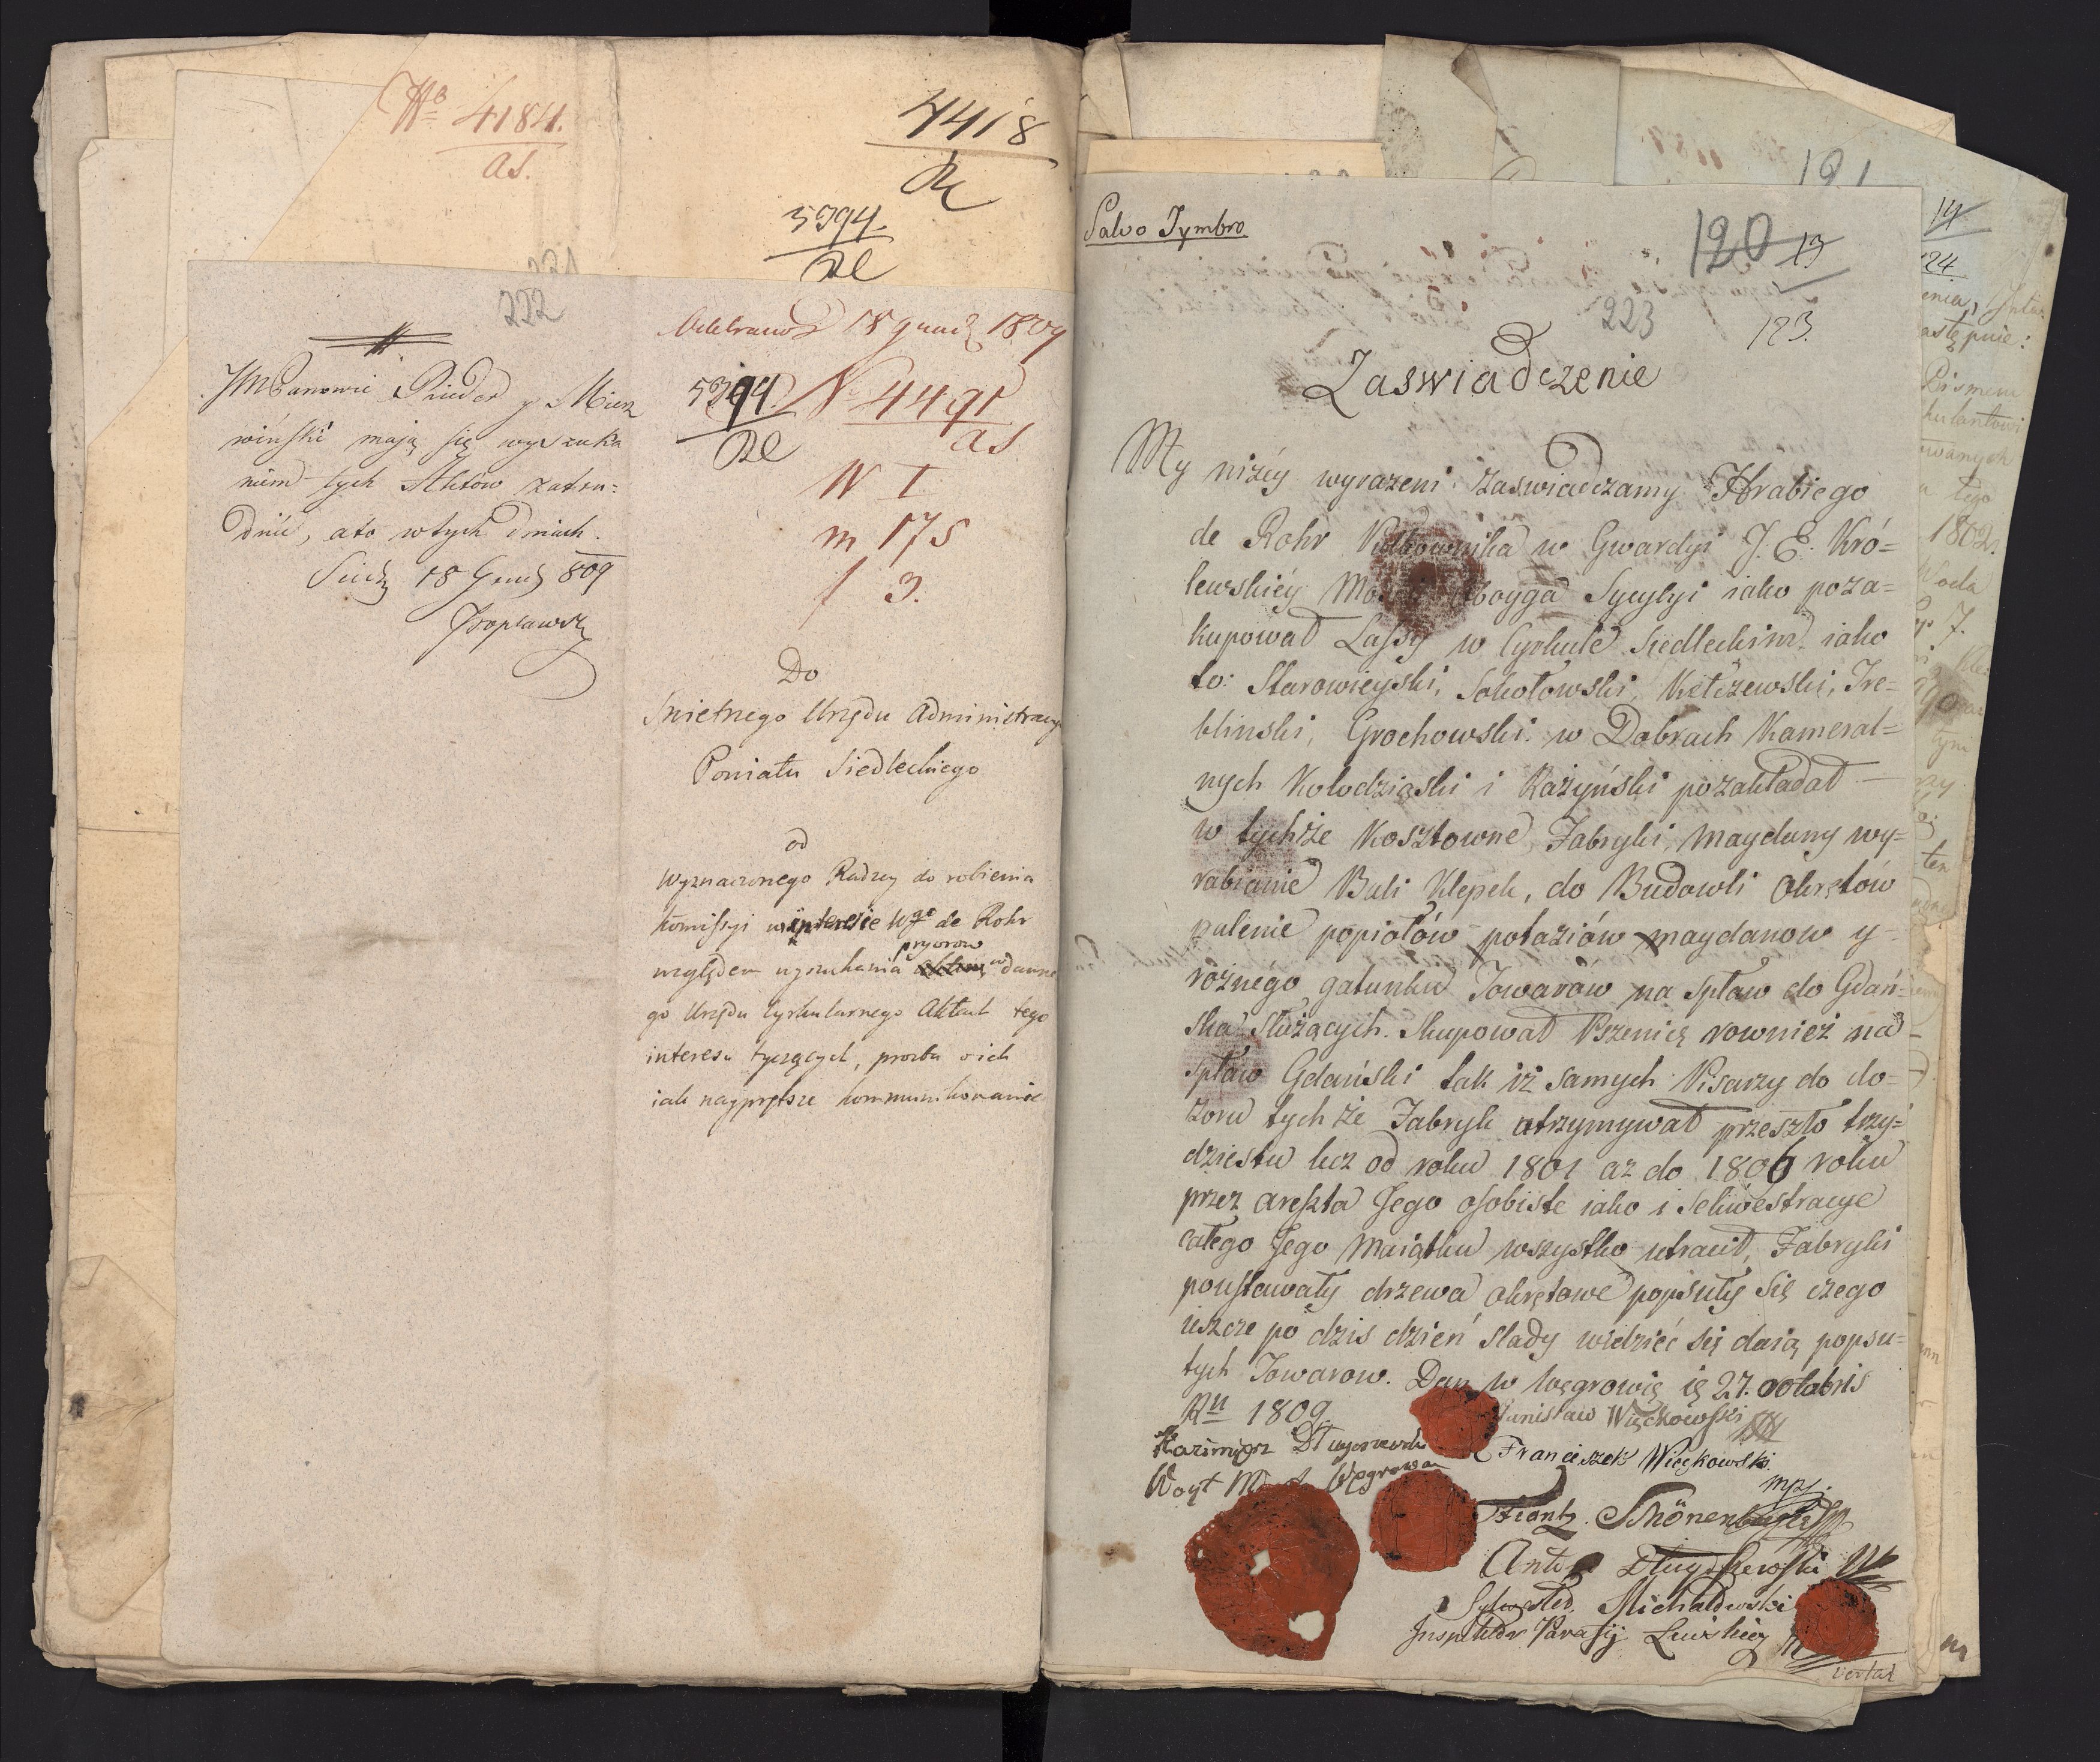 No 4184.
as.
4418
Re
5394.
Re
222
JMPanowie Rinder y Mierz
wiński mają się wyszuka
niem tych Aktów zatru=
dnić, a to w tych dniach.
Siedz 18 Grud 809
Odebrano d 18 grud 1809
5394
Re
No 4491
as
N I
m 175
f 3.
Do
Swietnego Urzędu Administracyi
Powiatu Siedleckiego
od
Wyznaczonego Radzcy do robienia
Kommissyi w interesie Wgo de Rohr
względem wyszukania pryorow w dawne
go Urzędu Cyrkularnego Aktach tego
interesu tyczących, prozba o ich
iak nayprętsze kommunikowanie
191
Salvo Tymbro
120 13
223
123.
Zaswiadczenie
My niżéy wyrazeni zaswiadczamy Hrabiego
de Rohr Pułkownika w Gwardyi J. E. Kró=
lewskiéy Mości Oboyga Sycylyi iako poza=
kupował Lassy w Cyrkule Siedleckim iako
to: Starowieyski, Sokołowski, Kétczewski, Tre=
blinski, Grochowski w Dobrach Kameral=
nych Kołodziąski i Rażyński pozakładał —
w tychże Kosztowne Fabryki, maydany wy=
rabianie Bali Klepek, do Budowli Okrętów
palenie popiołów potaziów maydanow y
rożnégo gatunku Towarów na spław do Gdań=
ska Służących. Skupował Pszenicę rownież na
spław Gdański tak iż samych Pisarzy do do=
zoru tychże Fabryk utrzymywał przeszło trzy=
dziestu lecz od roku 1801 az do 1806 roku
przez areszta Jego osobiste iako i Sekwestracye
całego Jego Maiątku wszystko utracił, Fabryki
poustawały drzewa okrętowe popsuły się czego
ieszcze po dzis dzień slady widzieć się daią popsu=
tych Towarow. Dan w Węgrowie ię 27. octobris
Ru 1809.
Stanisław Więckowski
Kazimierz Długoszewski
Franciszek Więckowski
Woyt Węgrowa
mpr.
Frantz. Schönen
Antoni Długoszewski
Sylwester Michałowski
Inspektor Parafij
vertat